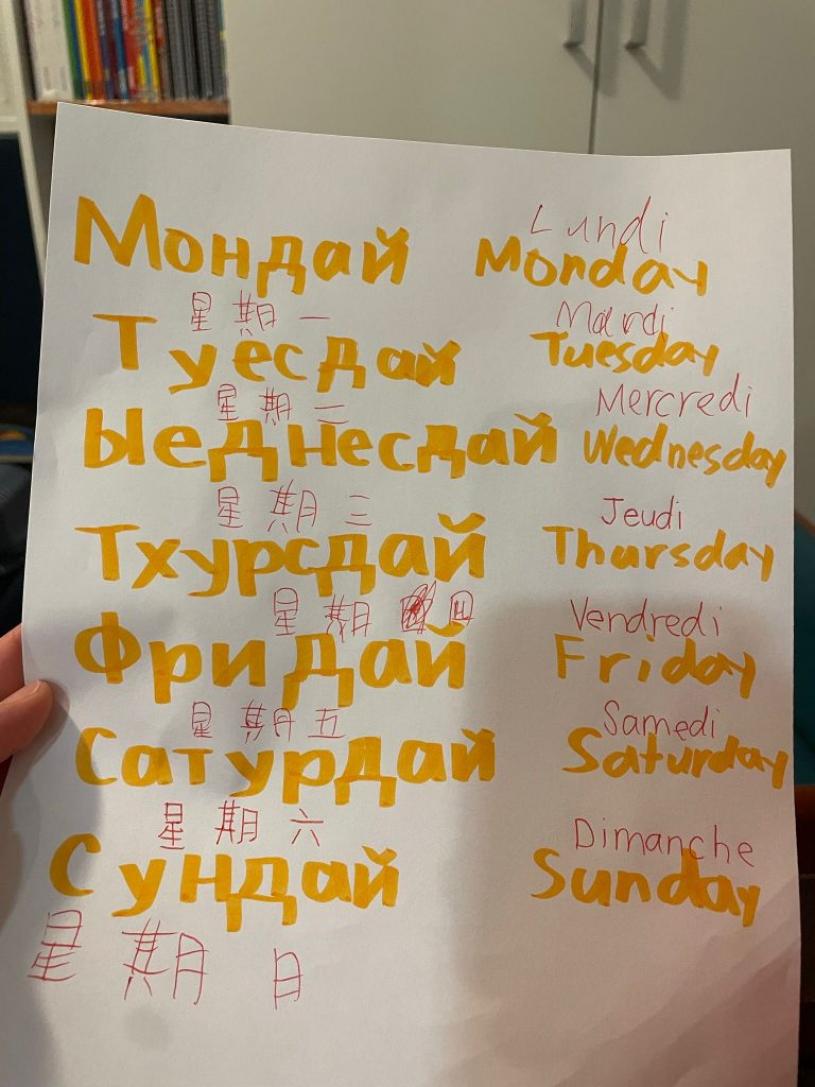 Lundi
Мондай Monday
星期一 Mardi
Туесдай Tuesday
星期二 Mercredi
Ыеднесдай Wednesday
星期三 Jeudi
Тхурсдай Thursday
星期四 Vendredi
Фридай Friday
星期五 Samedi
Сатурдай Saturday
星期六 Dimanche
Сундай Sunday
星期日